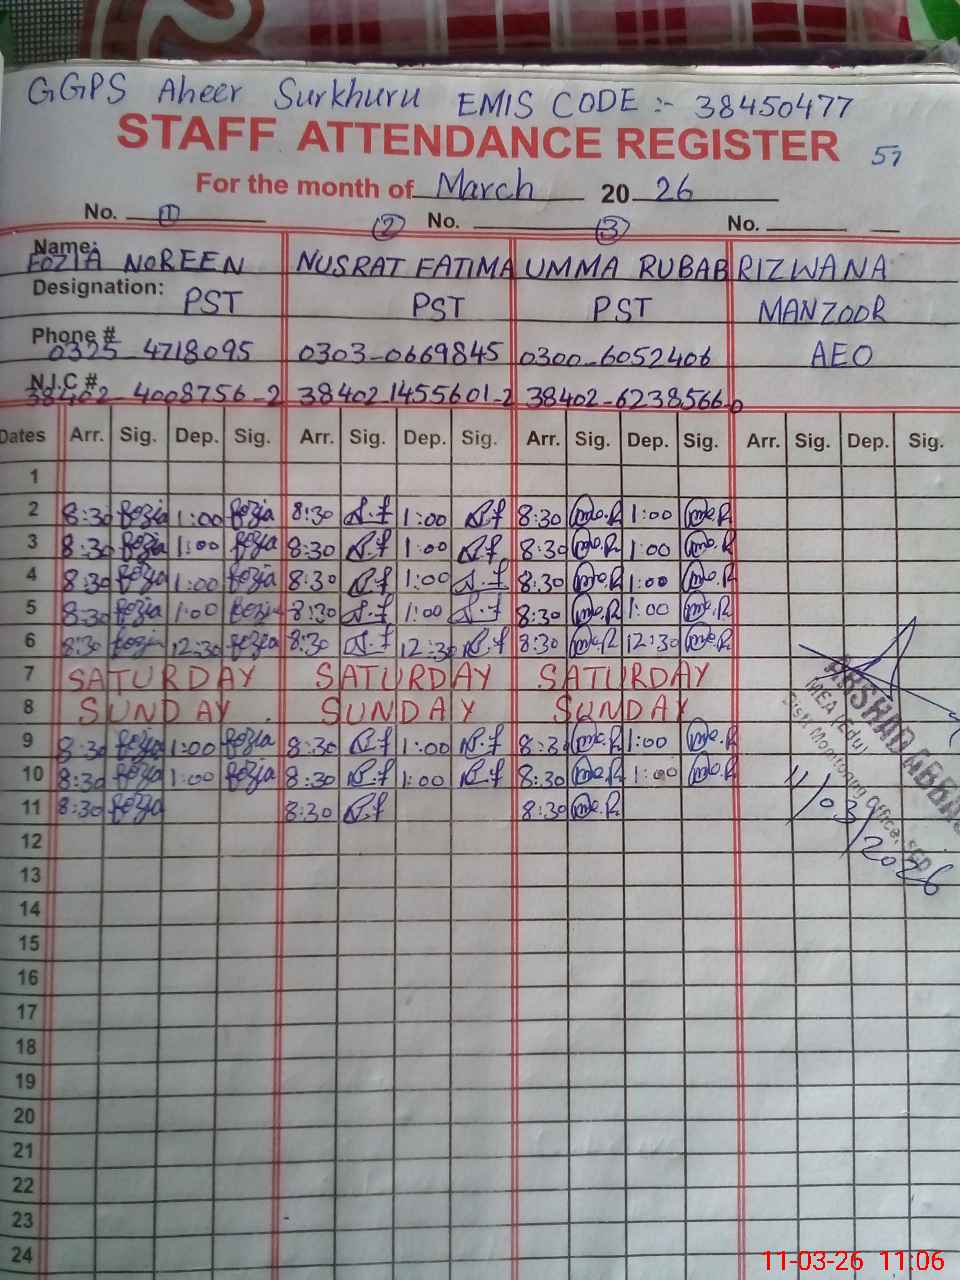 GGPS Aheer Surkhuru EMIS CODE :- 38450477
STAFF ATTENDANCE REGISTER 57
For the month of March 2026
No. 1 2 No. 3 No.
Name: FOZIA NOREEN NUSRAT FATIMA UMMA RUBAB RIZWANA
Designation: PST PST PST MANZOOR
Phone # 0325-4718095 0303-0669845 0300-6052406 AEO
N.I.C # 38402-4008756-2 38402-1455601-2 38402-6238566-0
Dates Arr. Sig. Dep. Sig. Arr. Sig. Dep. Sig. Arr. Sig. Dep. Sig. Arr. Sig. Dep. Sig.
1
2 8:30 fozia 1:00 fozia 8:30 N.f 1:00 N.f 8:30 1:00
3 8:30 fozia 1:00 fozia 8:30 N.f 1:00 N.f 8:30 1:00
4 8:30 fozia 1:00 fozia 8:30 N.f 1:00 N.f 8:30 1:00
5 8:30 fozia 1:00 fozia 8:30 N.f 1:00 N.f 8:30 1:00
6 8:30 fozia 12:30 fozia 8:30 N.f 12:30 N.f 8:30 12:30
7 SATURDAY SATURDAY SATURDAY
8 SUNDAY SUNDAY SUNDAY
9 8:30 fozia 1:00 fozia 8:30 N.f 1:00 N.f 8:30 1:00
10 8:30 fozia 1:00 fozia 8:30 N.f 1:00 N.f 8:30 1:00
11 8:30 fozia 8:30 N.f 8:30
12
13
14
15
16
17
18
19
20
21
22
23
24
MEA (Edu)
Distt Monitoring Office,
11/03/2026
11-03-26 11:06